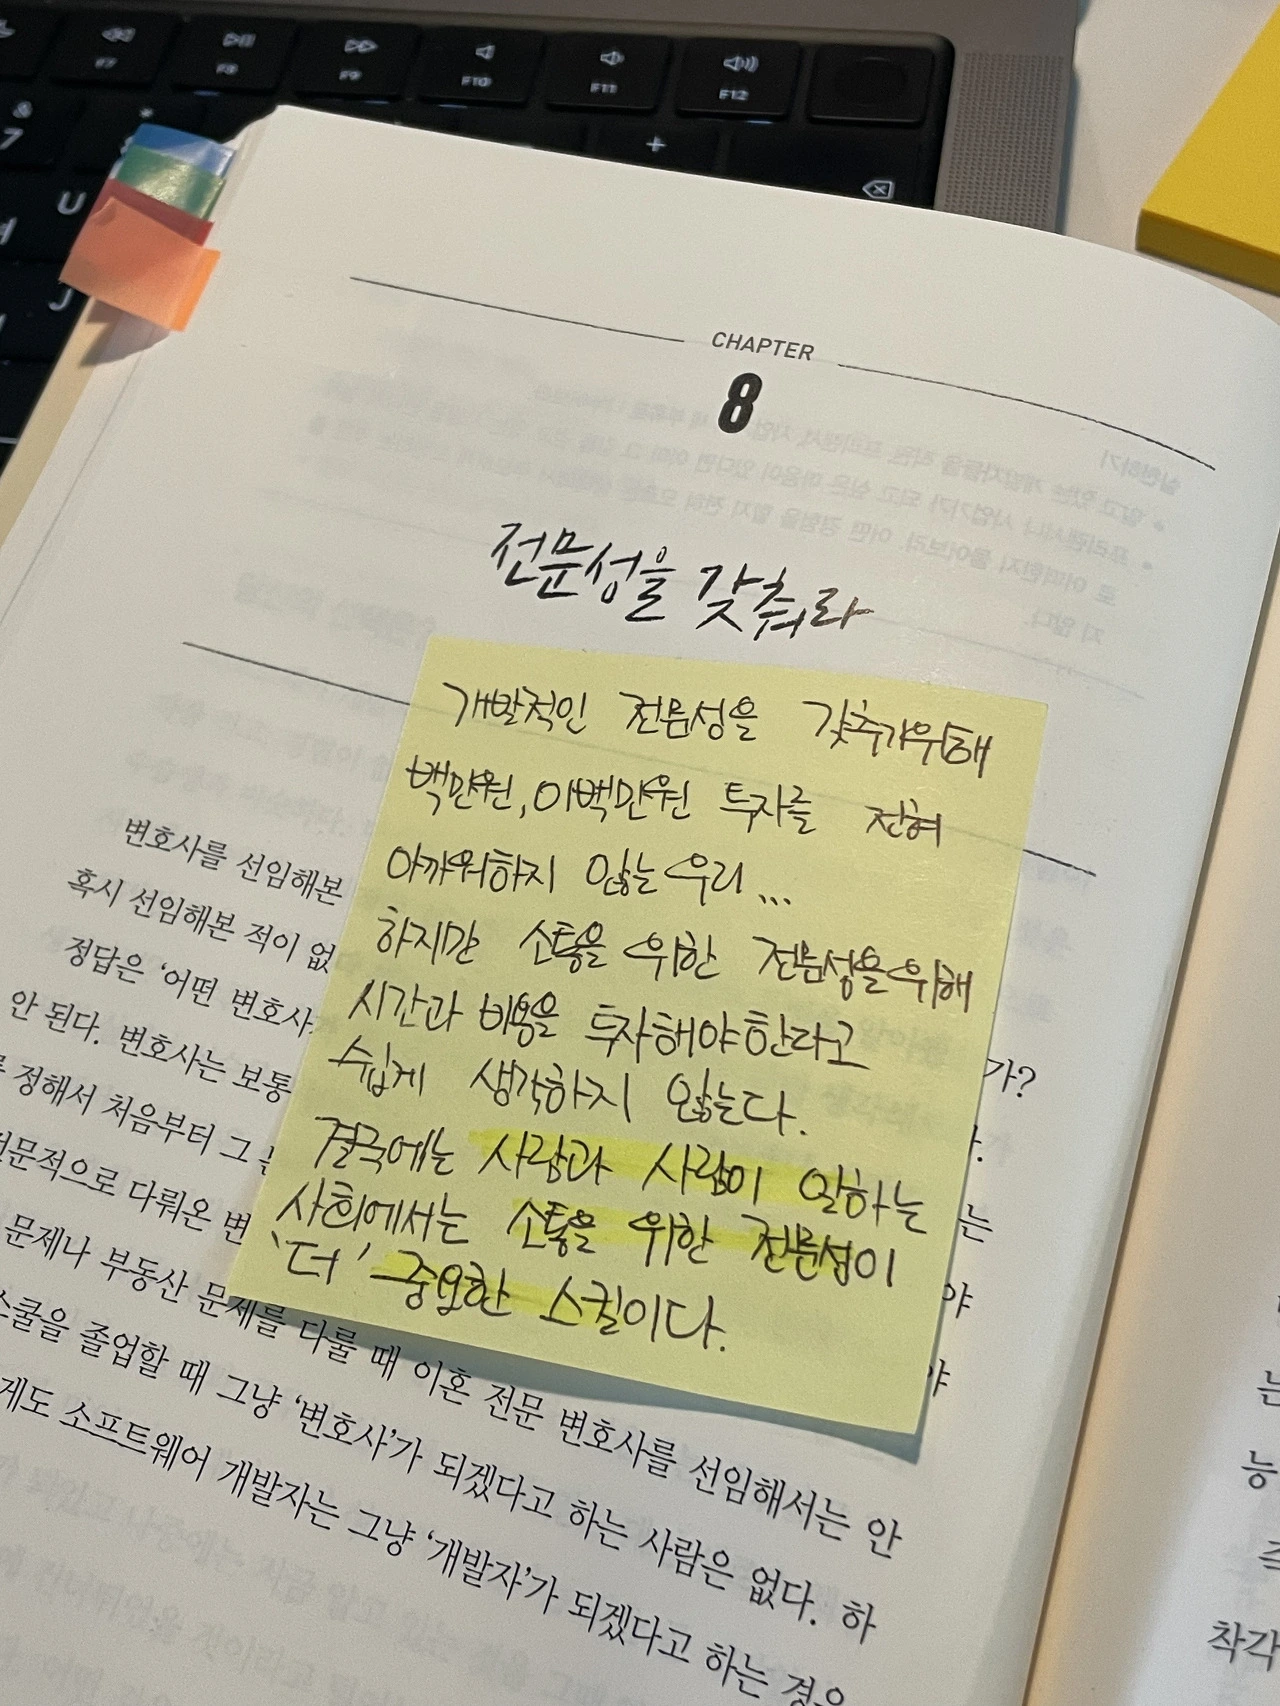 F7
F8
F9
F10
F11
F12
&
7
*
+
U
J
CHAPTER
8
전문성을 갖춰라
개발적인 전문성을 갖추기위해
백만원, 이백만원 투자를 전혀
아까워하지 않는 우리...
하지만 소통을 위한 전문성을위해
시간과 비용을 투자해야한다고
쉽게 생각하지 않는다.
결국에는 사람과 사람이 일하는
사회에서는 소통을 위한 전문성이
'더' 중요한 스킬이다.
변호사를 선임해본
가?
혹시 선임해본 적이 없
정답은 '어떤 변호사
는
안 된다. 변호사는 보통
야
정해서 처음부터 그
야
전문적으로 다뤄온 변
문제나 부동산 문제를 다룰 때 이혼 전문 변호사를 선임해서는 안
스쿨을 졸업할 때 그냥 '변호사'가 되겠다고 하는 사람은 없다. 하
게도 소프트웨어 개발자는 그냥 '개발자'가 되겠다고 하는 경우
는
능
착각